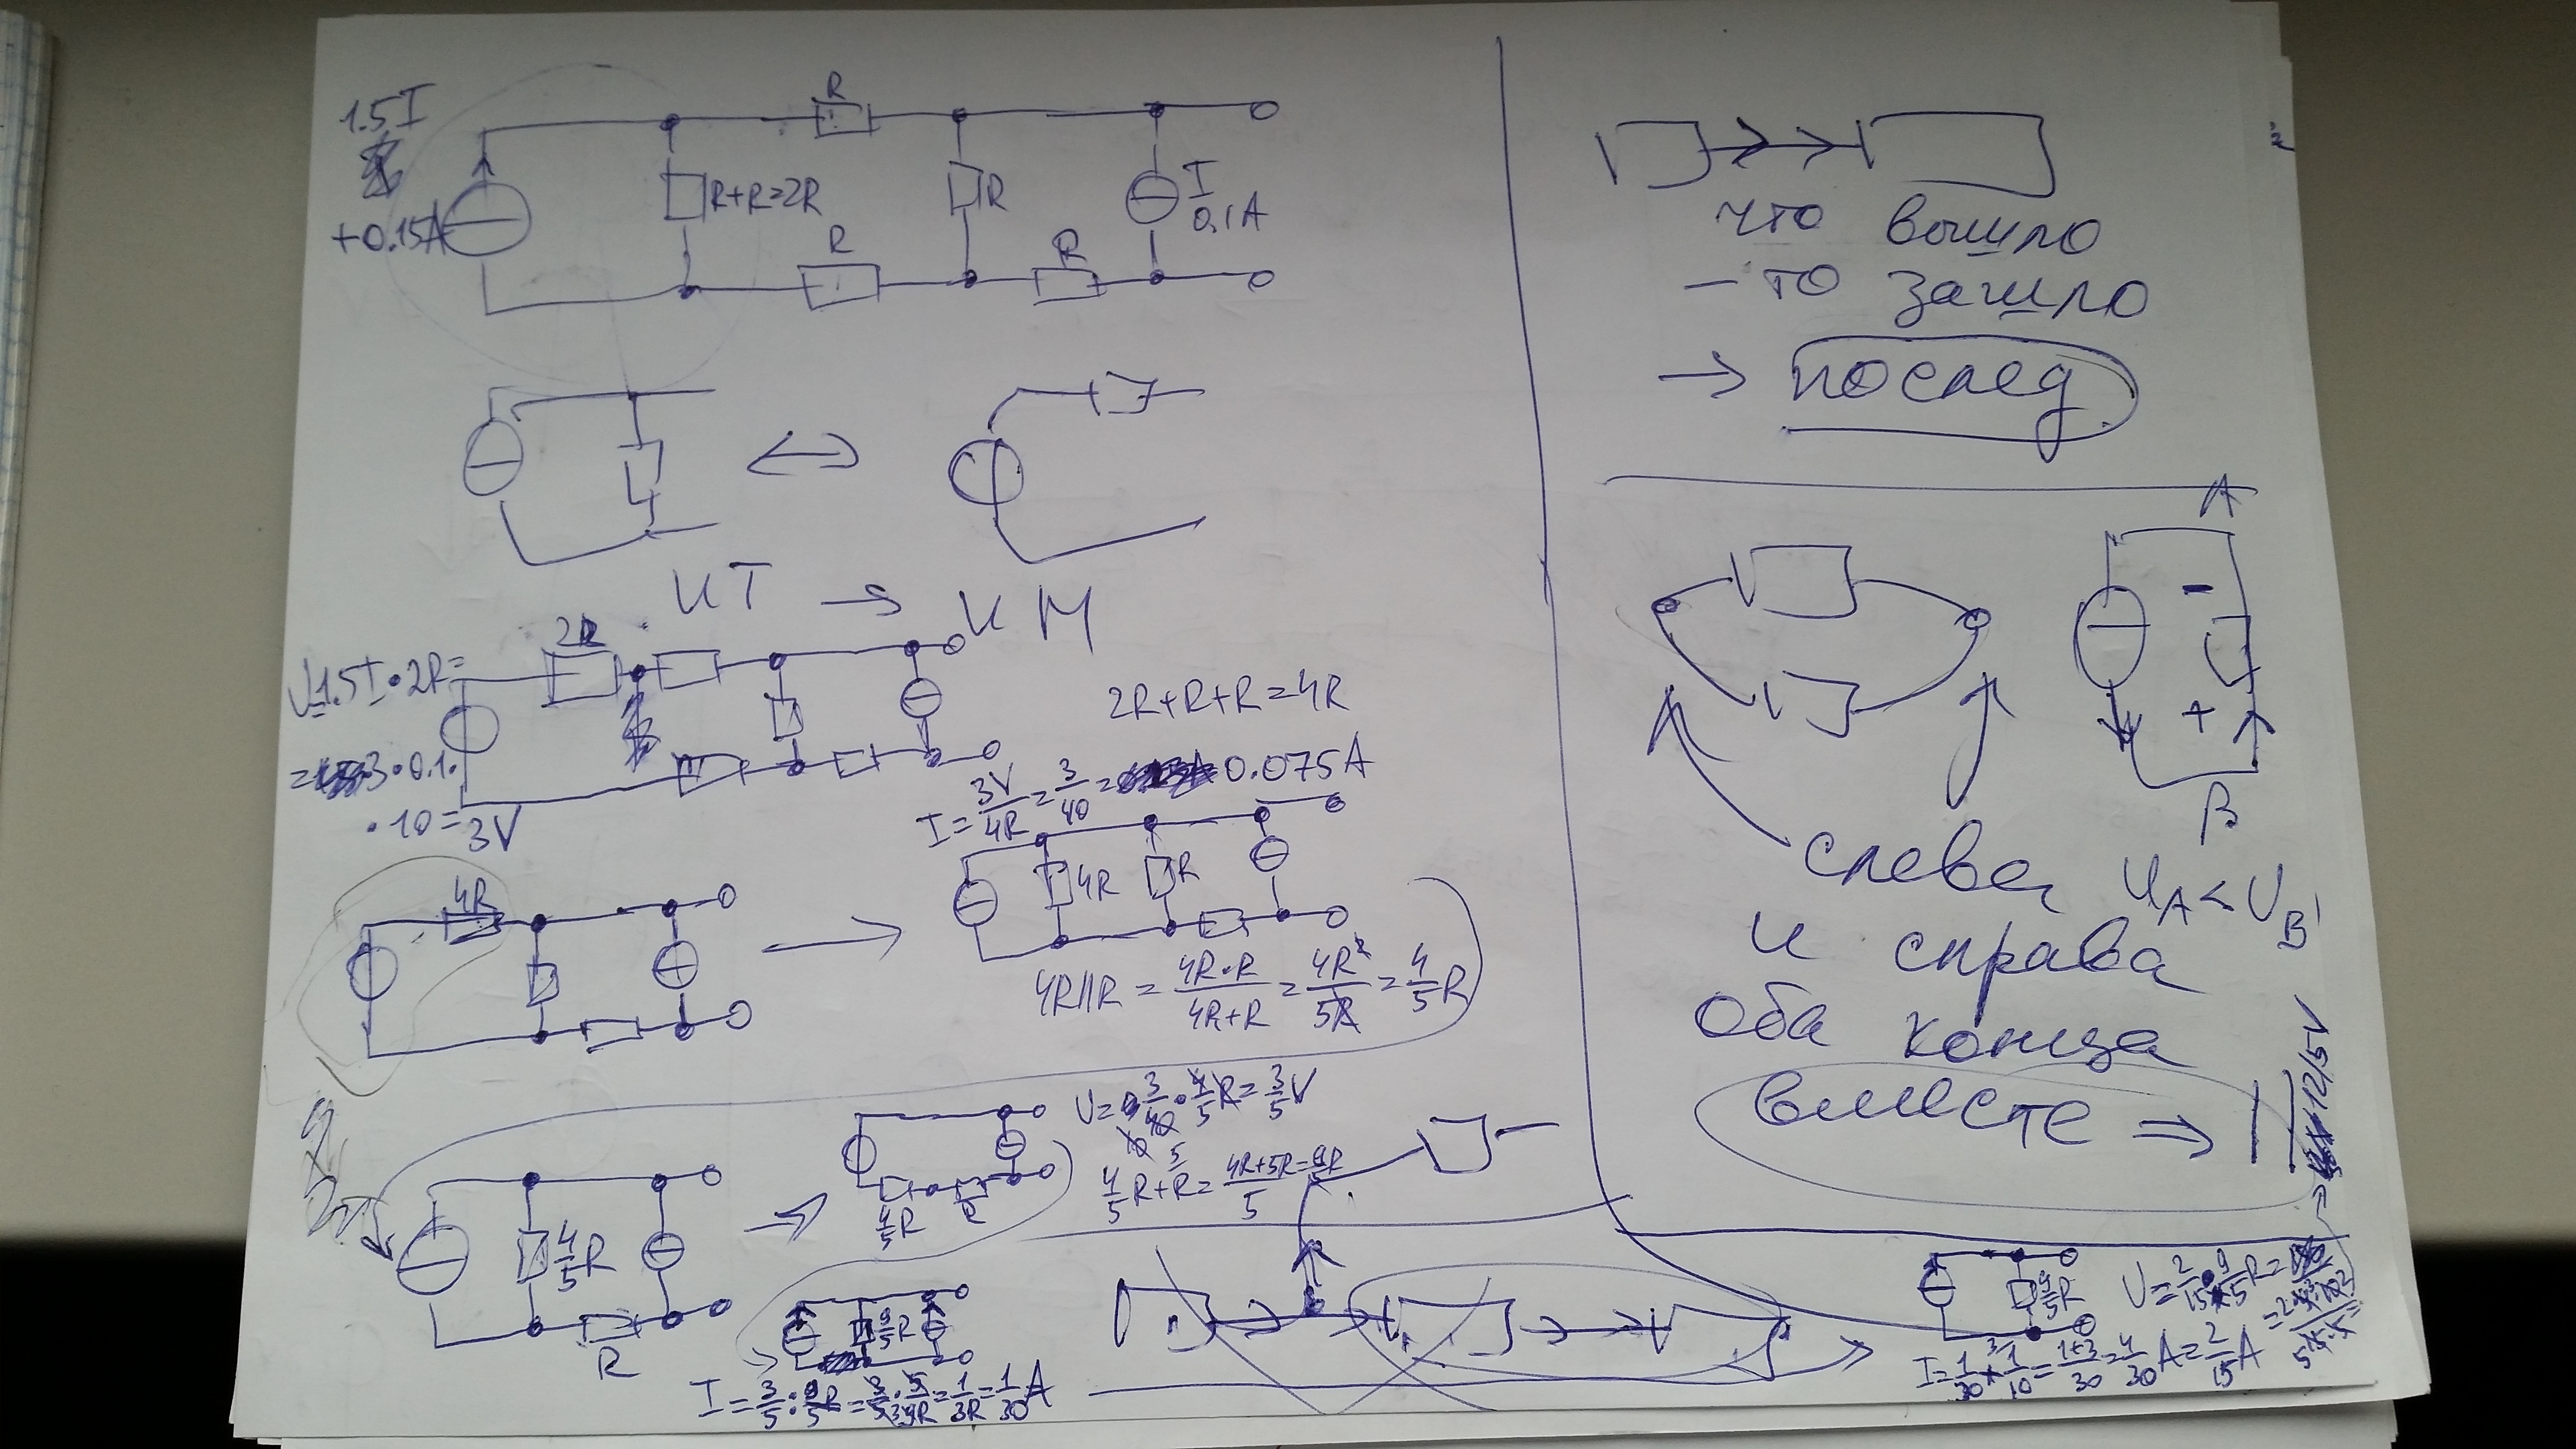 1.5I
+0.15A
R
R+R=2R
R
R
R
I
0.1A
ИТ → ИМ
2R
U=1.5I•2R=
=3•0.1•
•10=3V
2R+R+R=4R
I=3V/4R=3/40=0.075A
4R
4R
R
4R||R=4R•R/4R+R=4R²/5R=4/5R
U=3/40•4/5R=3/5V
4/5R+R=4R+5R/5=9R/5
4/5R
R
4/5R
R
9/5R
I=3/5:9/5R=3/5•5/9R=1/3R=1/30A
что вышло
– то зашло
→ послед
A
-
+
B
U_A<U_B
слева
и справа
оба конца
вместе ⇒ ||
9/5R
U=2/15•9/5R=
12/5V
I=1/30+1/10=1+3/30=4/30A=2/15A